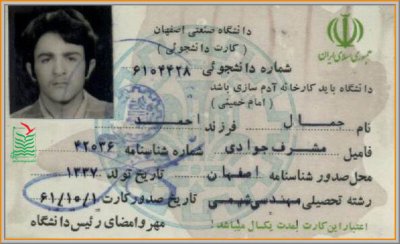 دانشگاه صنعتی اصفهان
(کارت دانشجوئی)
جمهوری اسلامی ایران
شماره دانشجوئی ۶۱۰۴۴۲۸
دانشگاه باید کارخانه آدم سازی باشد
(امام خمینی)
نام جمال فرزند احمد
فامیل مشرف جوادی شماره شناسنامه ۴۲۰۳۶
محل صدور شناسنامه اصفهان تاریخ تولد ۱۳۳۷
رشته تحصیلی مهندسی شیمی تاریخ صدور کارت ۶۱/۱۰/۱
اعتبار این کارت لمدت یکسال میباشد! مهر و امضای رئیس دانشگاه